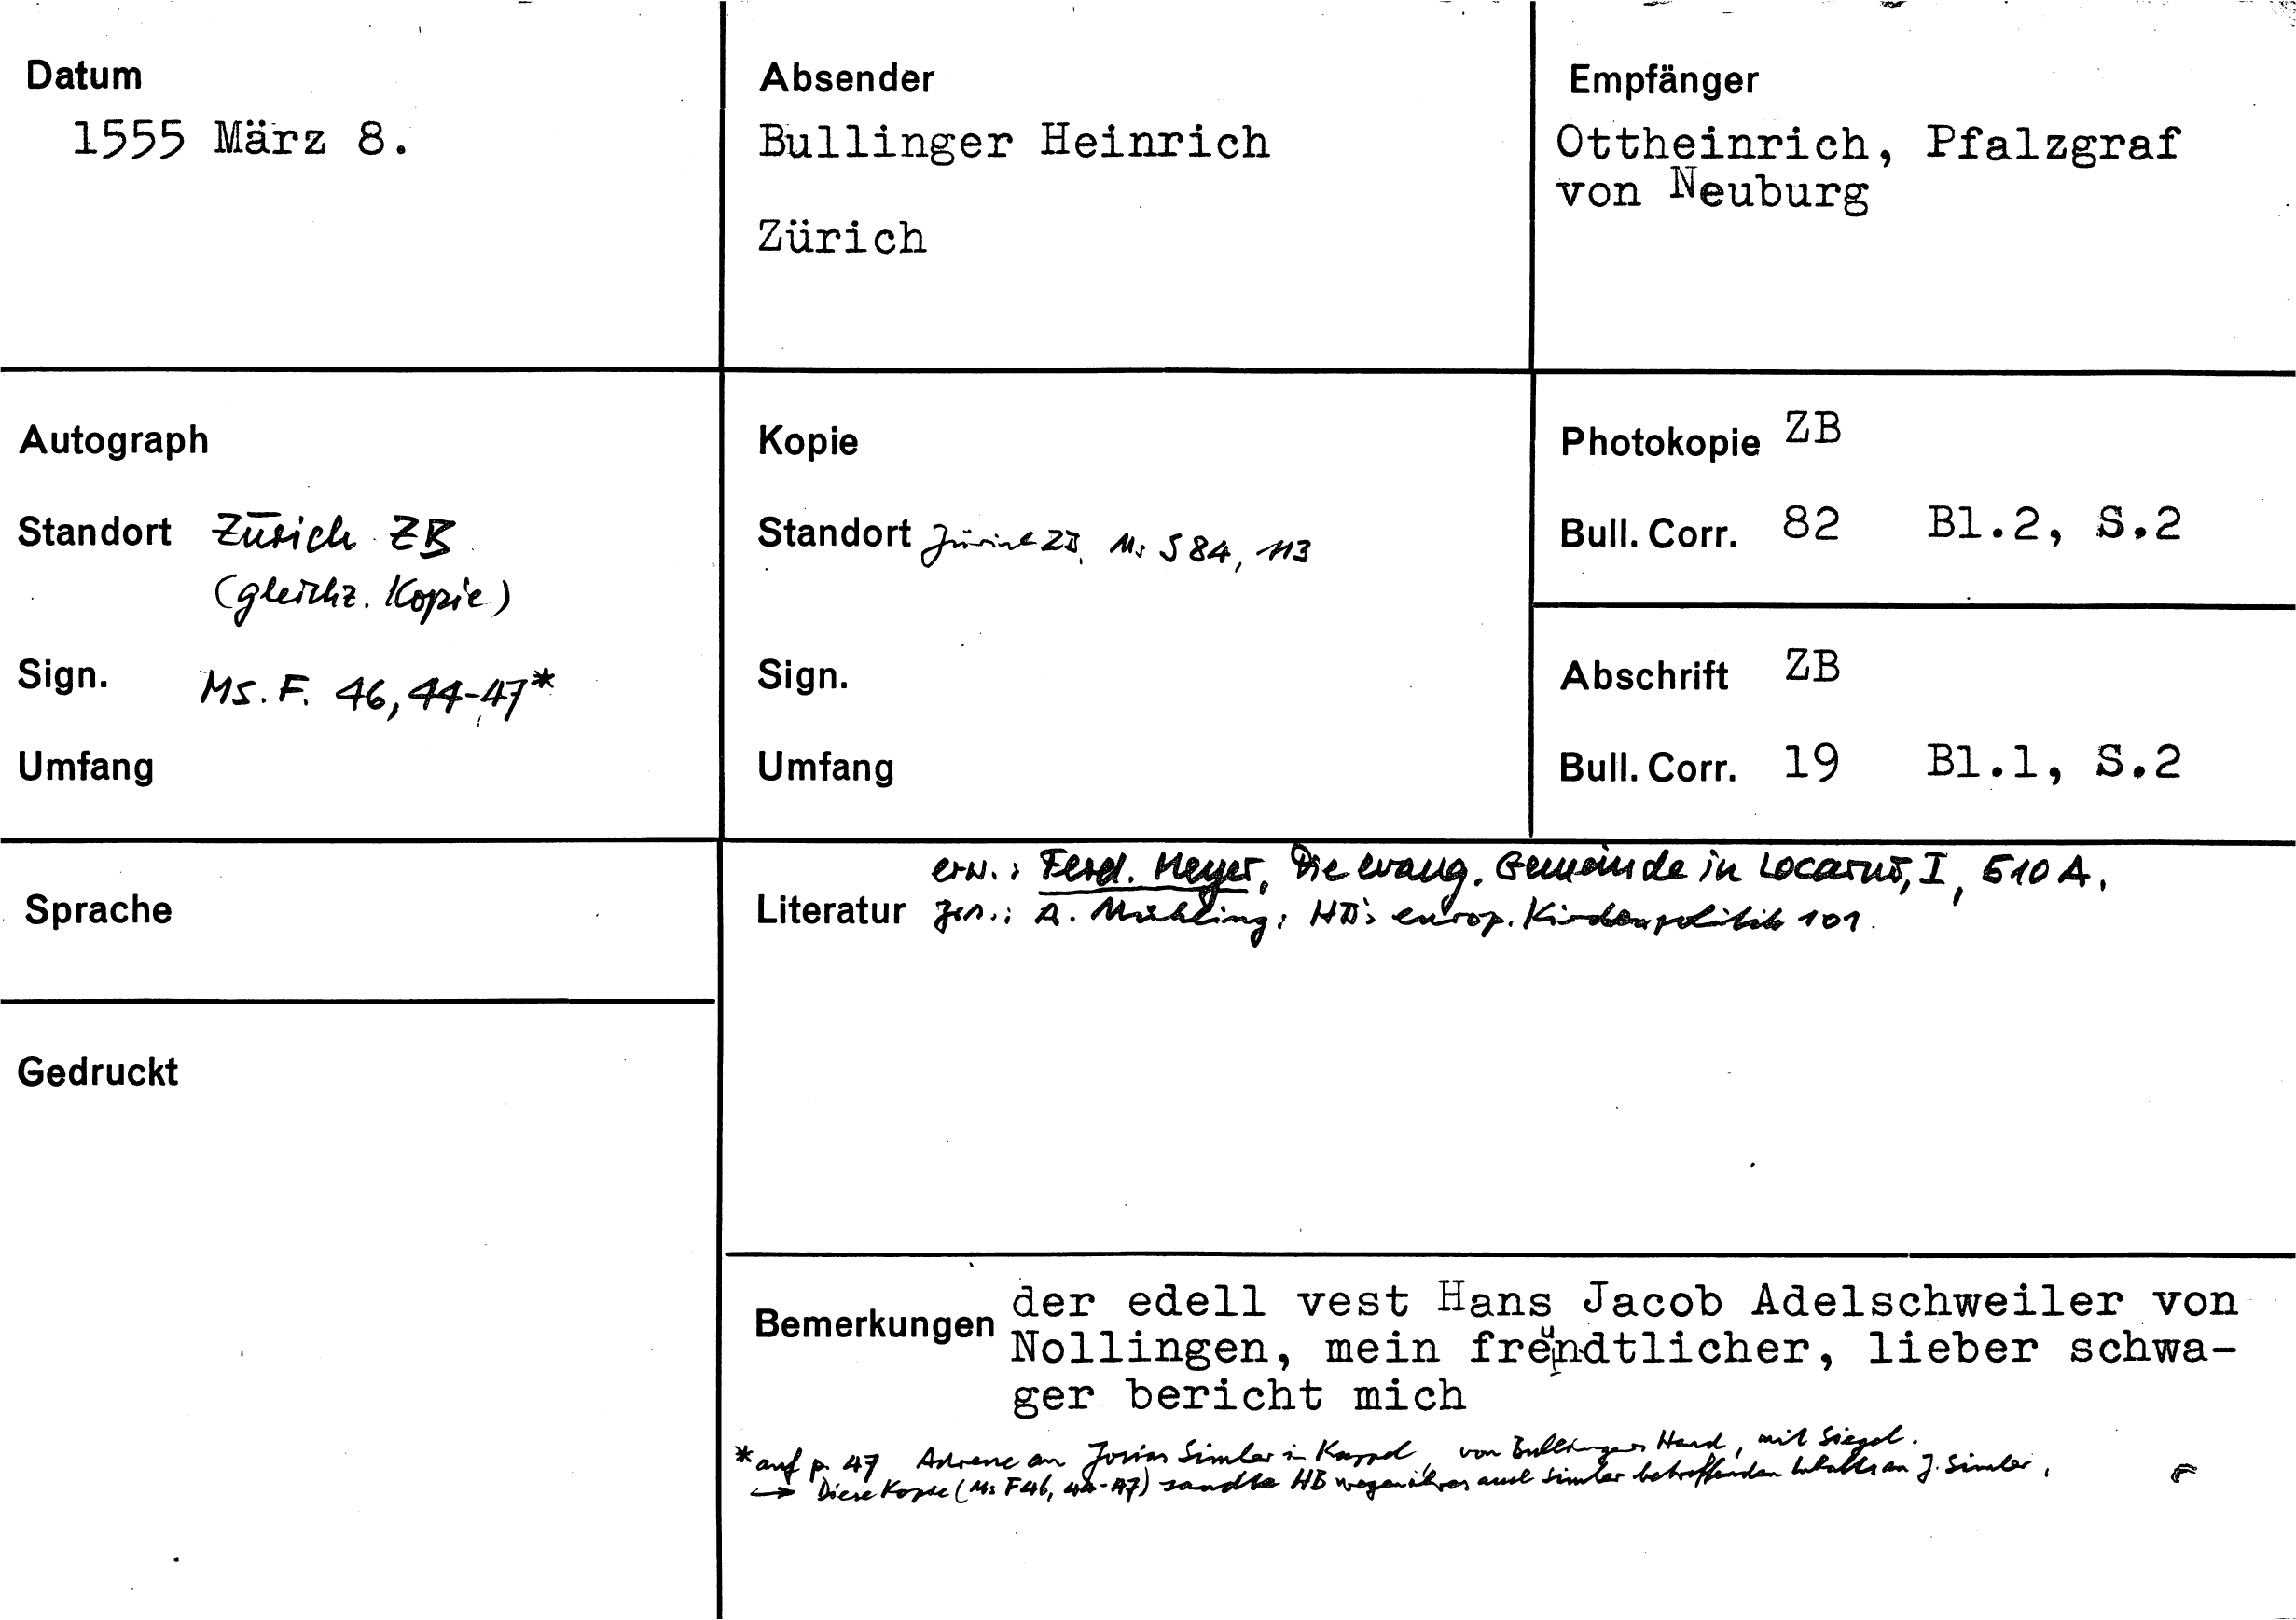 Datum
1555 März 8.
Absender
Bullinger Heinrich
Zürich
Empfänger
Ottheinrich, Pfalzgraf
von Neuburg
Autograph
Standort Zürich ZB
(gleichz. Kopie)
Sign. Ms. F. 46, 44-47*
Umfang
Kopie
Standort Zürich ZB, Ms S 84, 113
Sign.
Umfang
Photokopie ZB
Bull. Corr. 82 Bl.2, S.2
Abschrift ZB
Bull. Corr. 19 Bl.1, S.2
Sprache
Gedruckt
erw.: Ferd. Meyer, Die evang. Gemeinde in Locarno, I, 510 A.
Literatur A. Mühling, HB's europ. Kirchenpolitik 101.
Bemerkungen der edell vest Hans Jacob Adelschweiler von
Nollingen, mein freündtlicher, lieber schwa-
ger bericht mich
* auf p. 47 Adresse an Josias Simler in Kappel, von Bullingers Hand, mit Siegel.
→ Diese Kopie (Ms F 46, 44-47) sandte HB wegen ihres auch Simler betreffenden Inhalts an J. Simler.